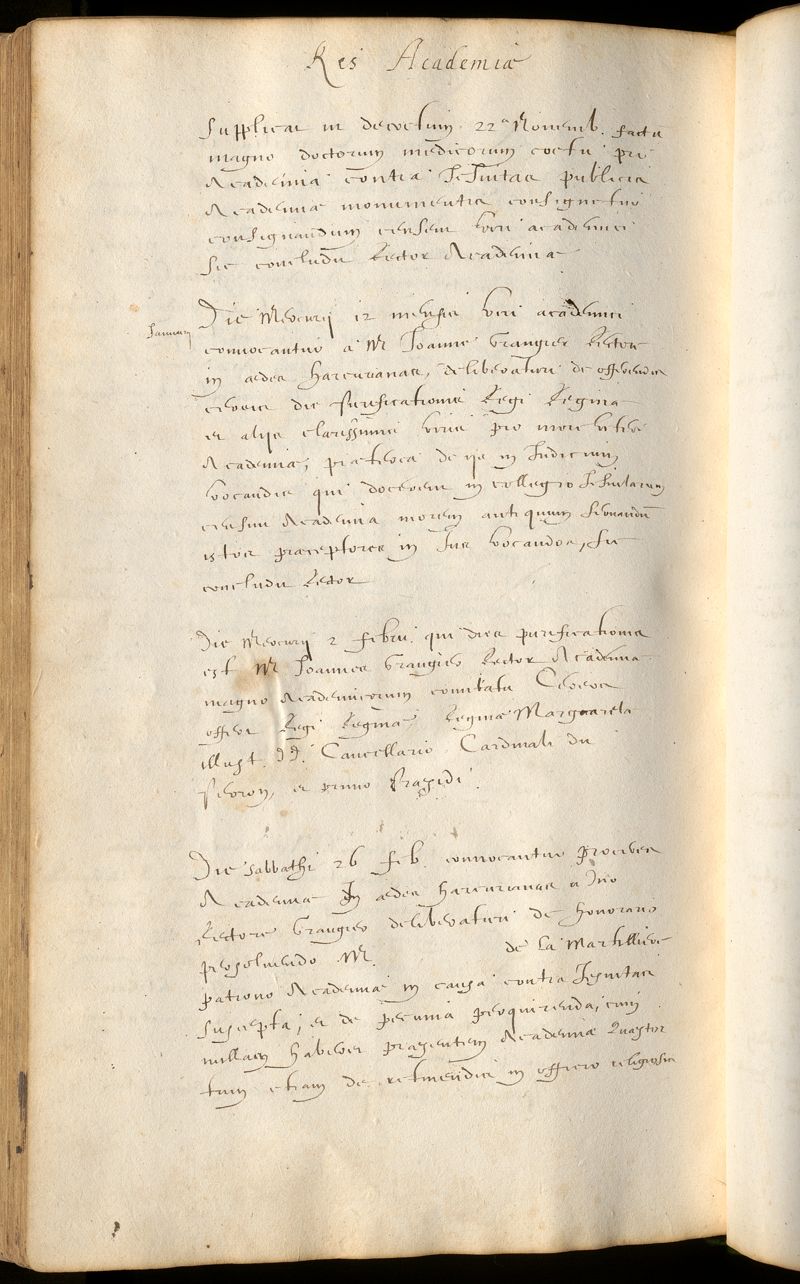 Res Academiæ
supplicat ut decretum 22ª Novemb. factū
magno doctorum medicorum coetu pro
Academia contra Jesuitas publicis
Academiæ monumentis consignetur
consignandum censent viri academici
sic concludit Rector Academiæ
Die Mercurij 12 mensis viri academici
Januarij
convocantur a Mº Joanne Grangier Rectore
in ædes harcurianas, deliberaturi de offerendis
cereis die purificationis Regi Reginæ
et alijs clarissimis viris pro more
Academiæ; præterea de ijs in Judicium
vocandis qui docerent in collegio Jesuitarum
censuit Academia morem antiquum servandū
istos præceptores in Jus vocandos, sic
concludit Rector
Die Mercurij 2 febru. qui dies purificationis
est Mr Joannes Grangier Rector Academiæ
magno Academicorum comitatu Cereos
offert Regi Reginæ, Reginæ Margaretæ
illust. DD. Cancellario Cardinali du
Perron, et primo Præsidi.
Die sabbathi 26 feb. convocantur proceres
Academiæ In ædes harcurianas a Dno
Rectore Grangier deliberaturi de honorario
persolvendo Mr. de la Martilliere
patrono Academiæ in causa contra Jesuitas
suscepta; et de pecunia perquirenda, cum
nullam haberet præsentem Academiæ Quæstor
tum etiam de retinendis in officio religiosis